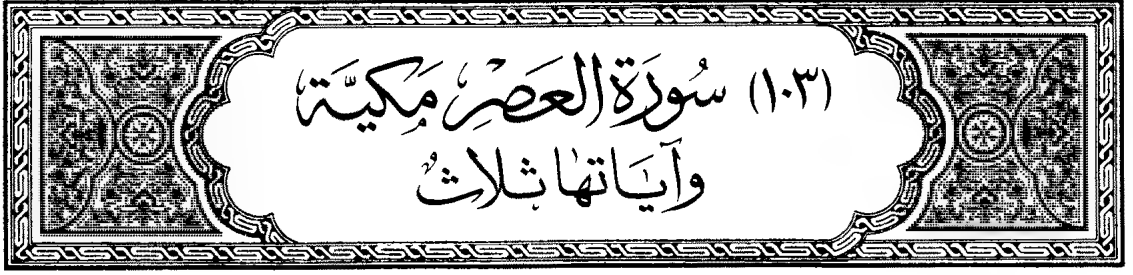 (١٠٣) سُورَةُ العَصْرِ مَكيَّة
وآيَاتها ثلاثٌ